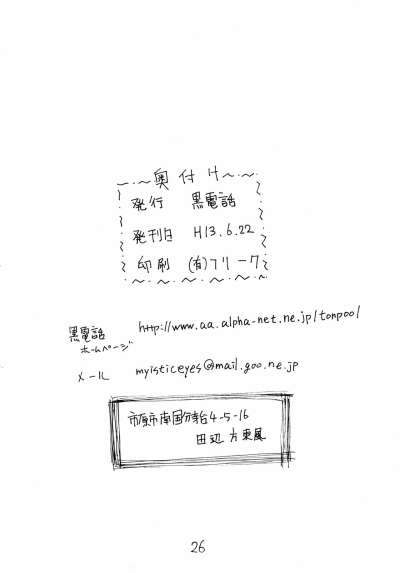 奥付け
発行 黒電話
発刊日 H13.6.22
印刷 (有)フリーク
黒電話
ホームページ
http://www.aa.alpha-net.ne.jp/tonpool
メール myisticeyes@mail.goo.ne.jp
市原市南国分寺台4-5-16
田辺方東風
26